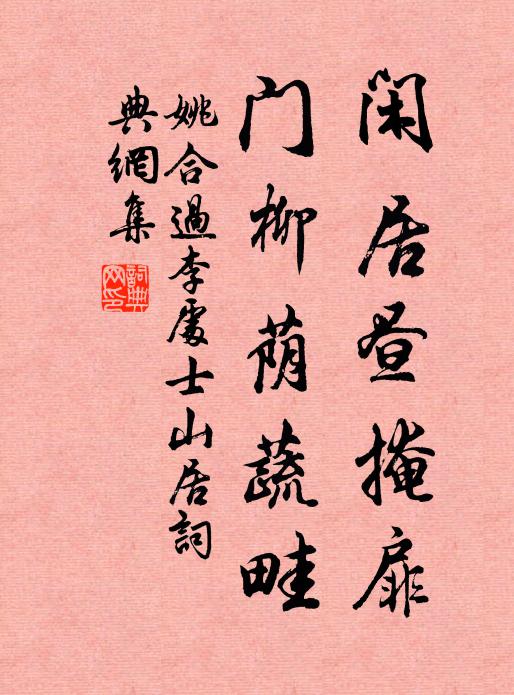 闲居昼掩扉
门柳荫蔬畦
姚合過李處士山居詞
典網集
詞典
网印